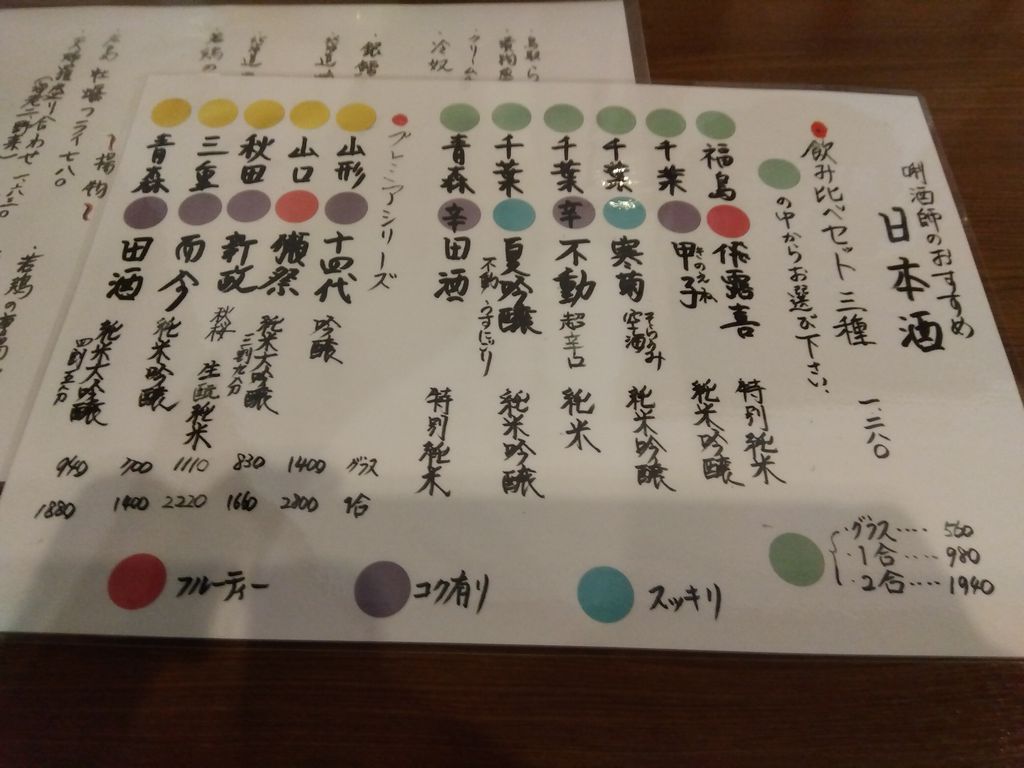 唎酒師のおすすめ
日本酒
飲み比べセット 三種 一、二八〇
の中からお選び下さい、
福島 作露喜 特別純米
千葉 甲子 きのえね 純米吟醸
千葉 寒菊 そらのみ 空酒 純米吟醸
千葉 辛 不動 超辛口 純米
千葉 夏吟醸 不動・うすにごり 純米吟醸
青森 辛 田酒 特別純米
グラス‥‥ 560
1合‥‥ 980
2合‥‥ 1940
プレミアシリーズ
山形 十四代 吟醸 グラス 1合
山口 獺祭 純米大吟醸 三割九分 1400 2800
秋田 新政 秋桜 生酛純米 830 1660
三重 而今 純米吟醸 1110 2220
青森 田酒 純米大吟醸 四割五分 700 1400
940 1880
フルーティー
コク有り
スッキリ
冷奴
クリーム
若鶏の
牡蠣フライ 七八〇
盛り合わせ 一、六三〇
揚物
・若鶏の